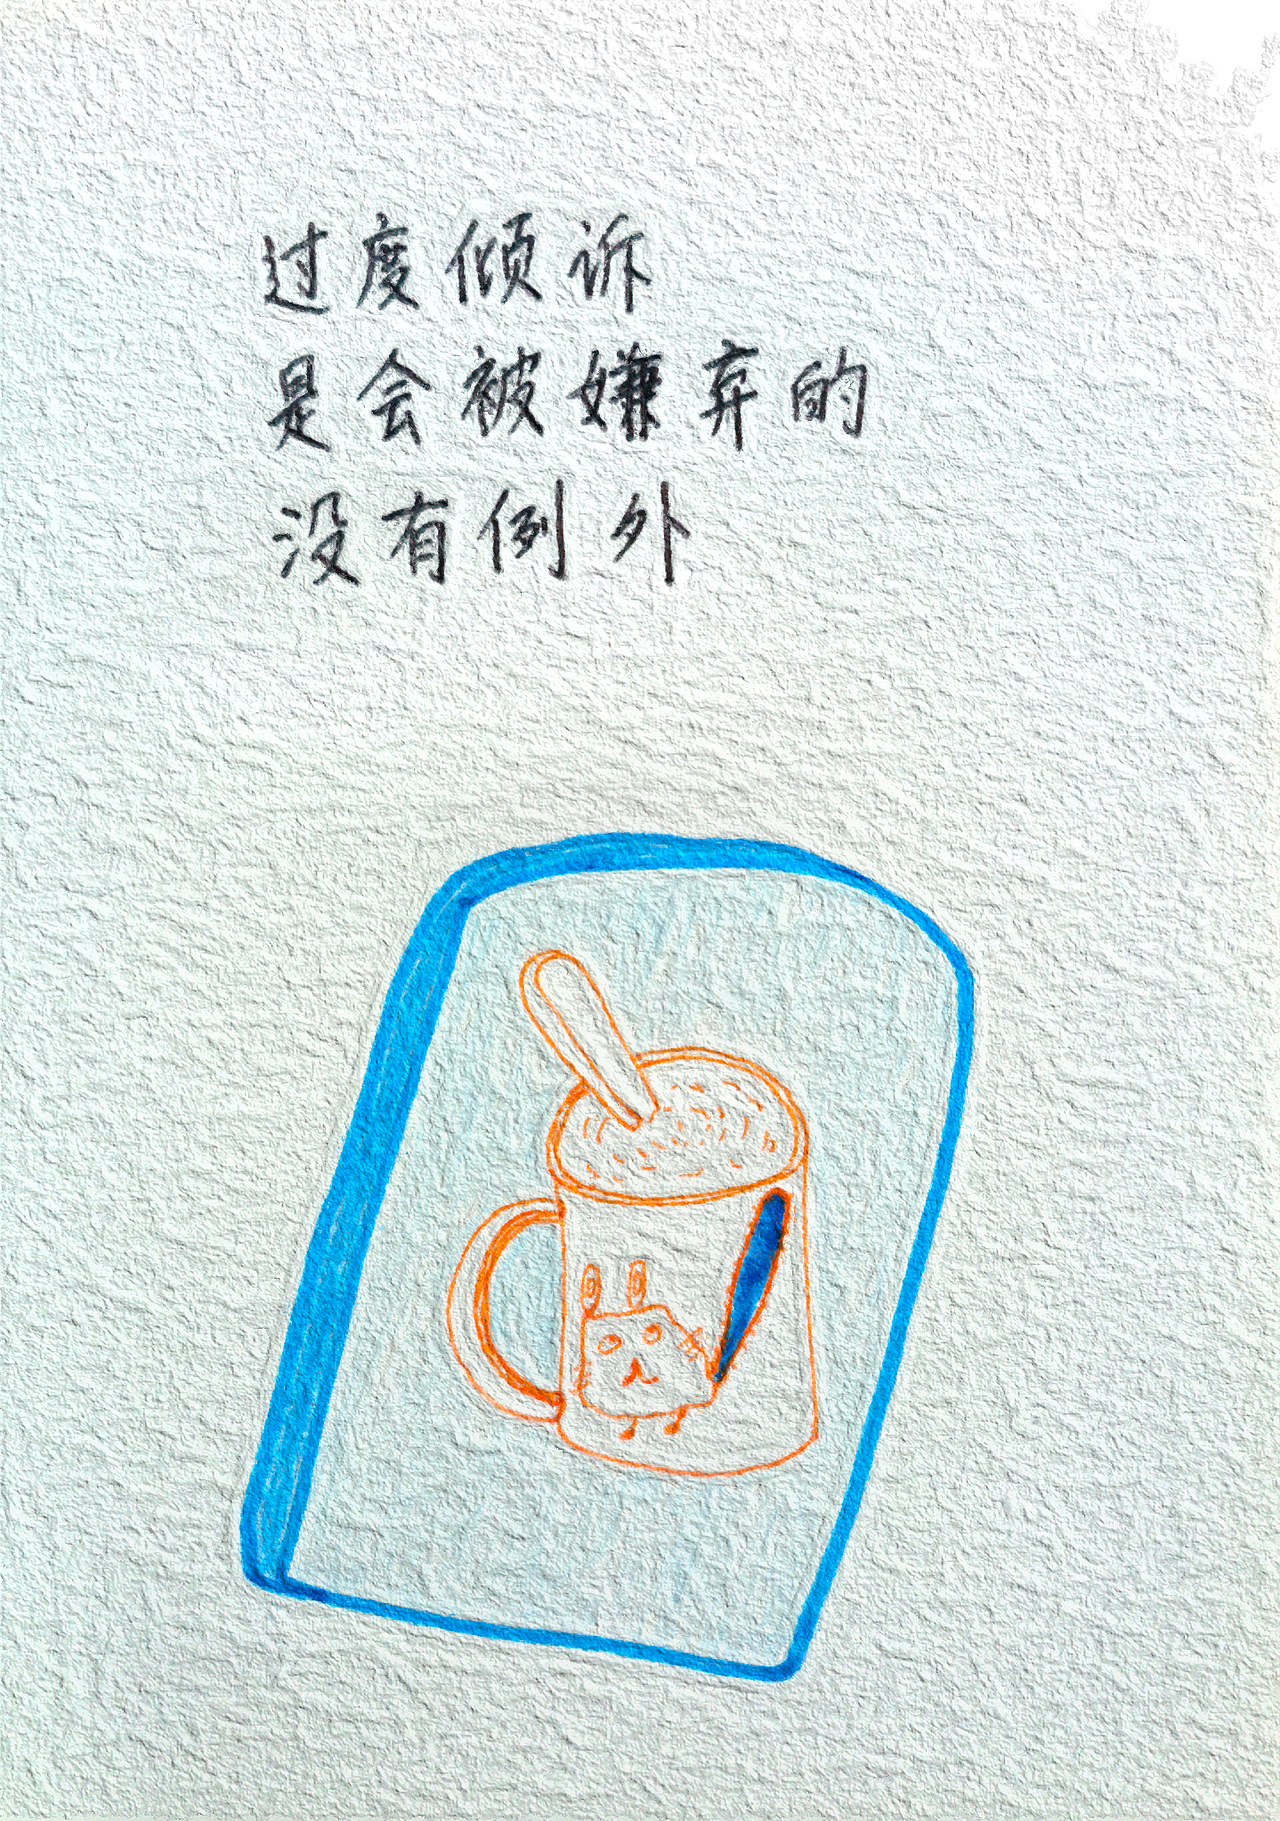 过度倾诉
是会被嫌弃的
没有例外